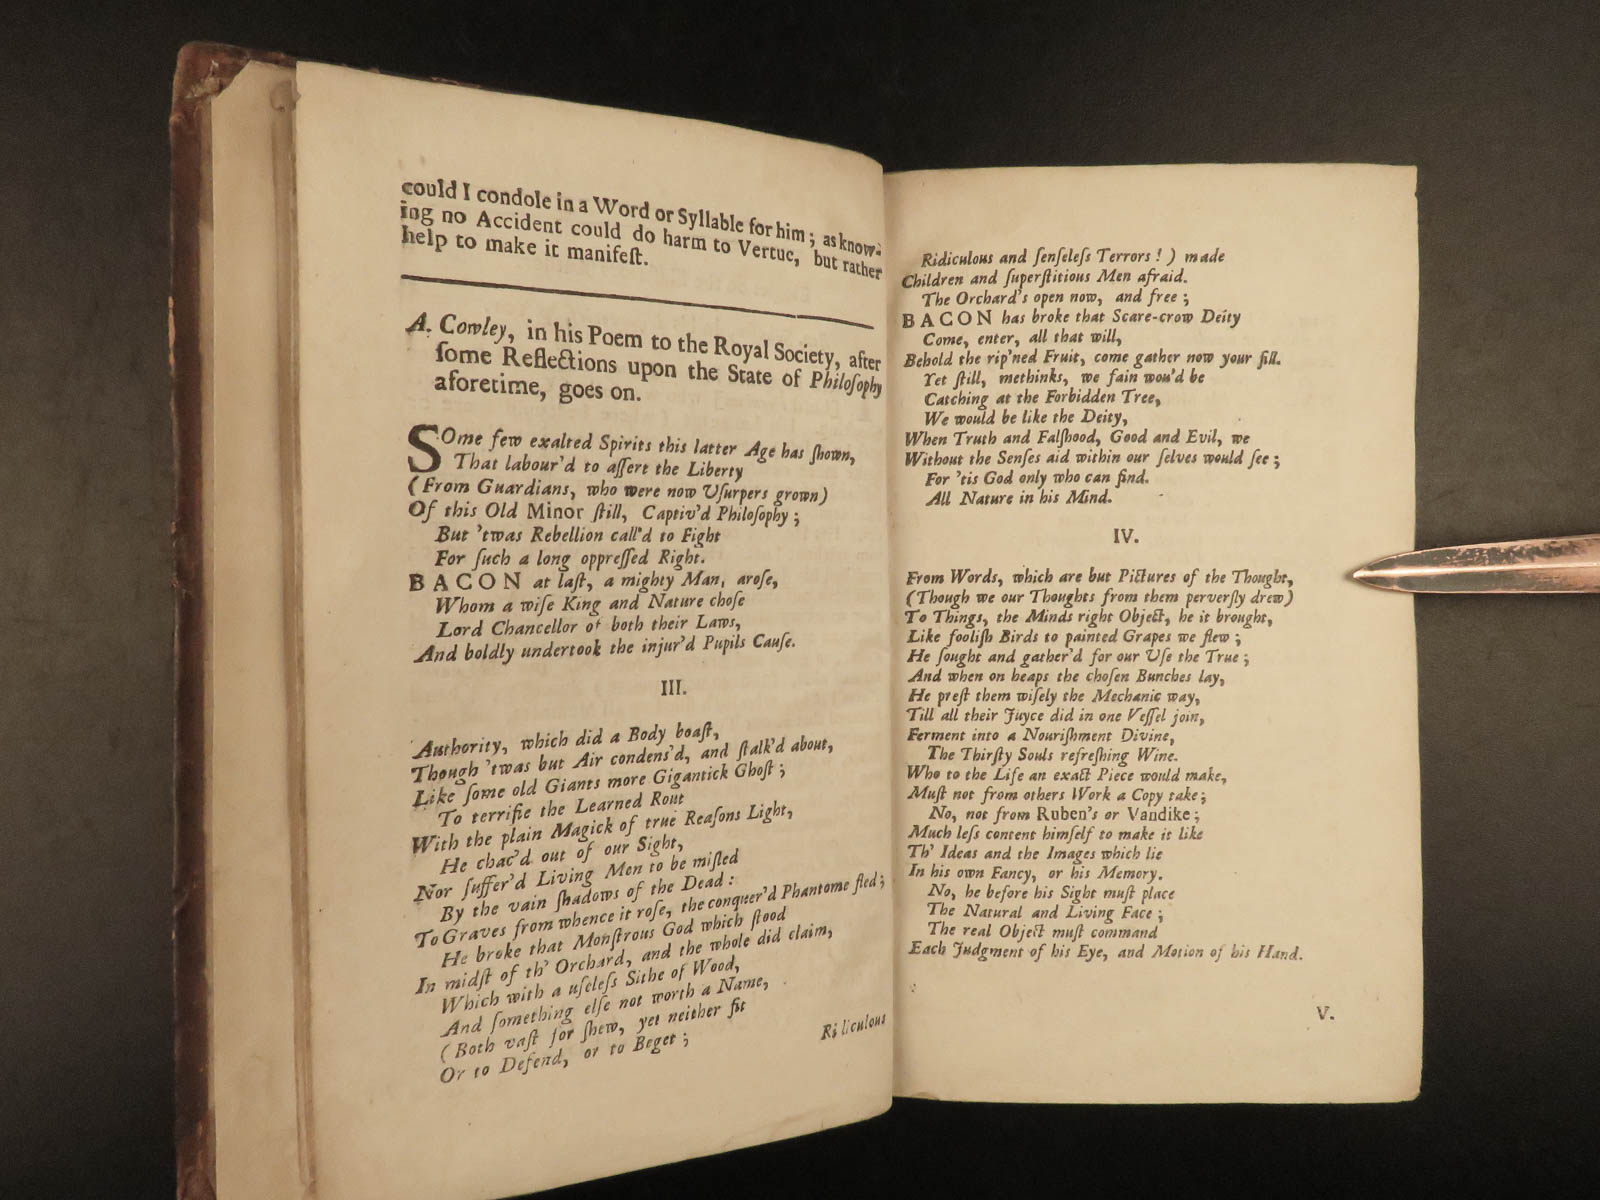 could I condole in a Word or Syllable for him; as know-
ing no Accident could do harm to Vertue, but rather
help to make it manifeſt.
A. Cowley, in his Poem to the Royal Society, after
ſome Reflections upon the State of Philoſophy
aforetime, goes on.
SOme few exalted Spirits this latter Age has ſhown,
That labour'd to aſſert the Liberty
(From Guardians, who were now Uſurpers grown)
Of this Old Minor ſtill, Captiv'd Philoſophy;
But 'twas Rebellion call'd to Fight
For ſuch a long oppreſſed Right.
BACON at laſt, a mighty Man, aroſe,
Whom a wiſe King and Nature choſe
Lord Chancellor of both their Laws,
And boldly undertook the injur'd Pupils Cauſe.
III.
Authority, which did a Body boaſt,
Though 'twas but Air condens'd, and ſtalk'd about,
Like ſome old Giants more Gigantick Ghoſt;
To terrifie the Learned Rout
With the plain Magick of true Reaſons Light,
He chac'd out of our Sight,
Nor ſuffer'd Living Men to be miſled
By the vain ſhadows of the Dead:
To Graves from whence it roſe, the conquer'd Phantome fled;
He broke that Monſtrous God which ſtood
In midſt of th' Orchard, and the whole did claim,
Which with a uſeleſs Sithe of Wood,
And ſomething elſe not worth a Name,
(Both vaſt for ſhew, yet neither fit
Or to Defend, or to Beget;
Ridiculous
Ridiculous and ſenſeleſs Terrors!) made
Children and ſuperſtitious Men afraid.
The Orchard's open now, and free;
BACON has broke that Scare-crow Deity
Come, enter, all that will,
Behold the rip'ned Fruit, come gather now your fill.
Yet ſtill, methinks, we fain wou'd be
Catching at the Forbidden Tree,
We would be like the Deity,
When Truth and Falſhood, Good and Evil, we
Without the Senſes aid within our ſelves would ſee;
For 'tis God only who can find.
All Nature in his Mind.
IV.
From Words, which are but Pictures of the Thought,
(Though we our Thoughts from them perverſly drew)
To Things, the Minds right Object, he it brought,
Like fooliſh Birds to painted Grapes we flew;
He ſought and gather'd for our Uſe the True;
And when on heaps the choſen Bunches lay,
He preſt them wiſely the Mechanic way,
Till all their Juyce did in one Veſſel join,
Ferment into a Nouriſhment Divine,
The Thirſty Souls refreſhing Wine.
Who to the Life an exact Piece would make,
Muſt not from others Work a Copy take;
No, not from Ruben's or Vandike;
Much leſs content himſelf to make it like
Th' Ideas and the Images which lie
In his own Fancy, or his Memory.
No, he before his Sight muſt place
The Natural and Living Face;
The real Object muſt command
Each Judgment of his Eye, and Motion of his Hand.
V.